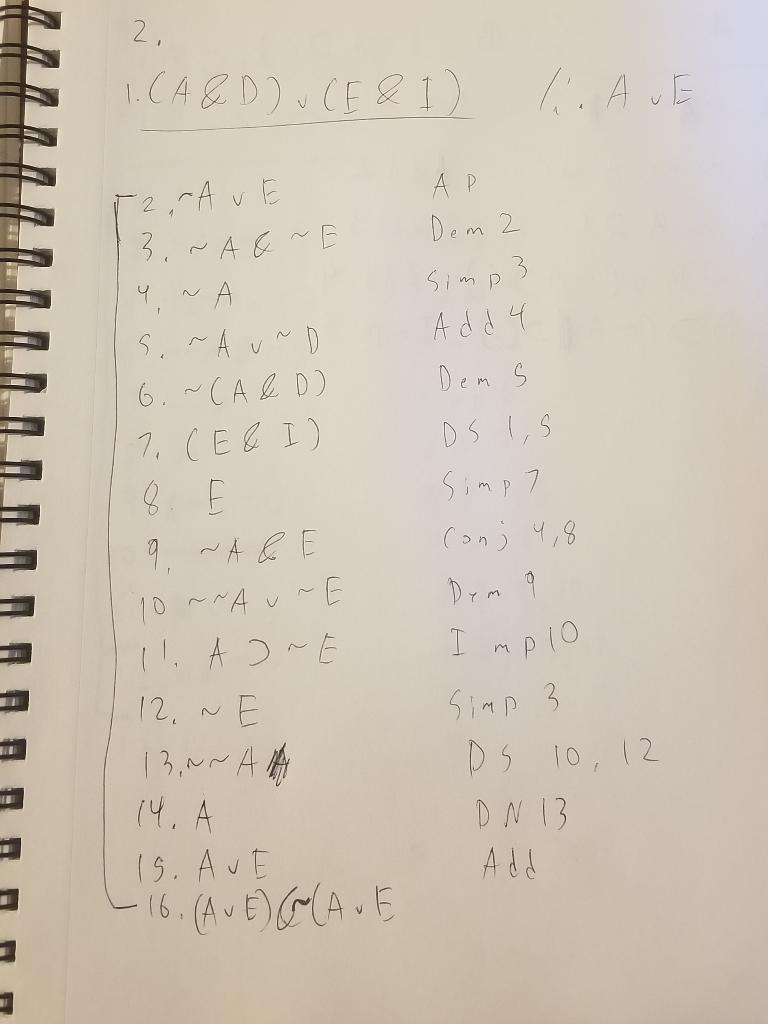 2.
1. (A & D) v (E & I) /∴ A v E
2. ~A v E AP
3. ~A & ~E Dem 2
4. ~A Simp 3
5. ~A v ~D Add 4
6. ~(A & D) Dem 5
7. (E & I) DS 1,5
8. E Simp 7
9. ~A & E Conj 4,8
10 ~~A v ~E Dem 9
11. A ⊃ ~E Imp 10
12. ~E Simp 3
13. ~~A DS 10, 12
14. A DN 13
15. A v E Add
16. (A v E) & ~(A v E